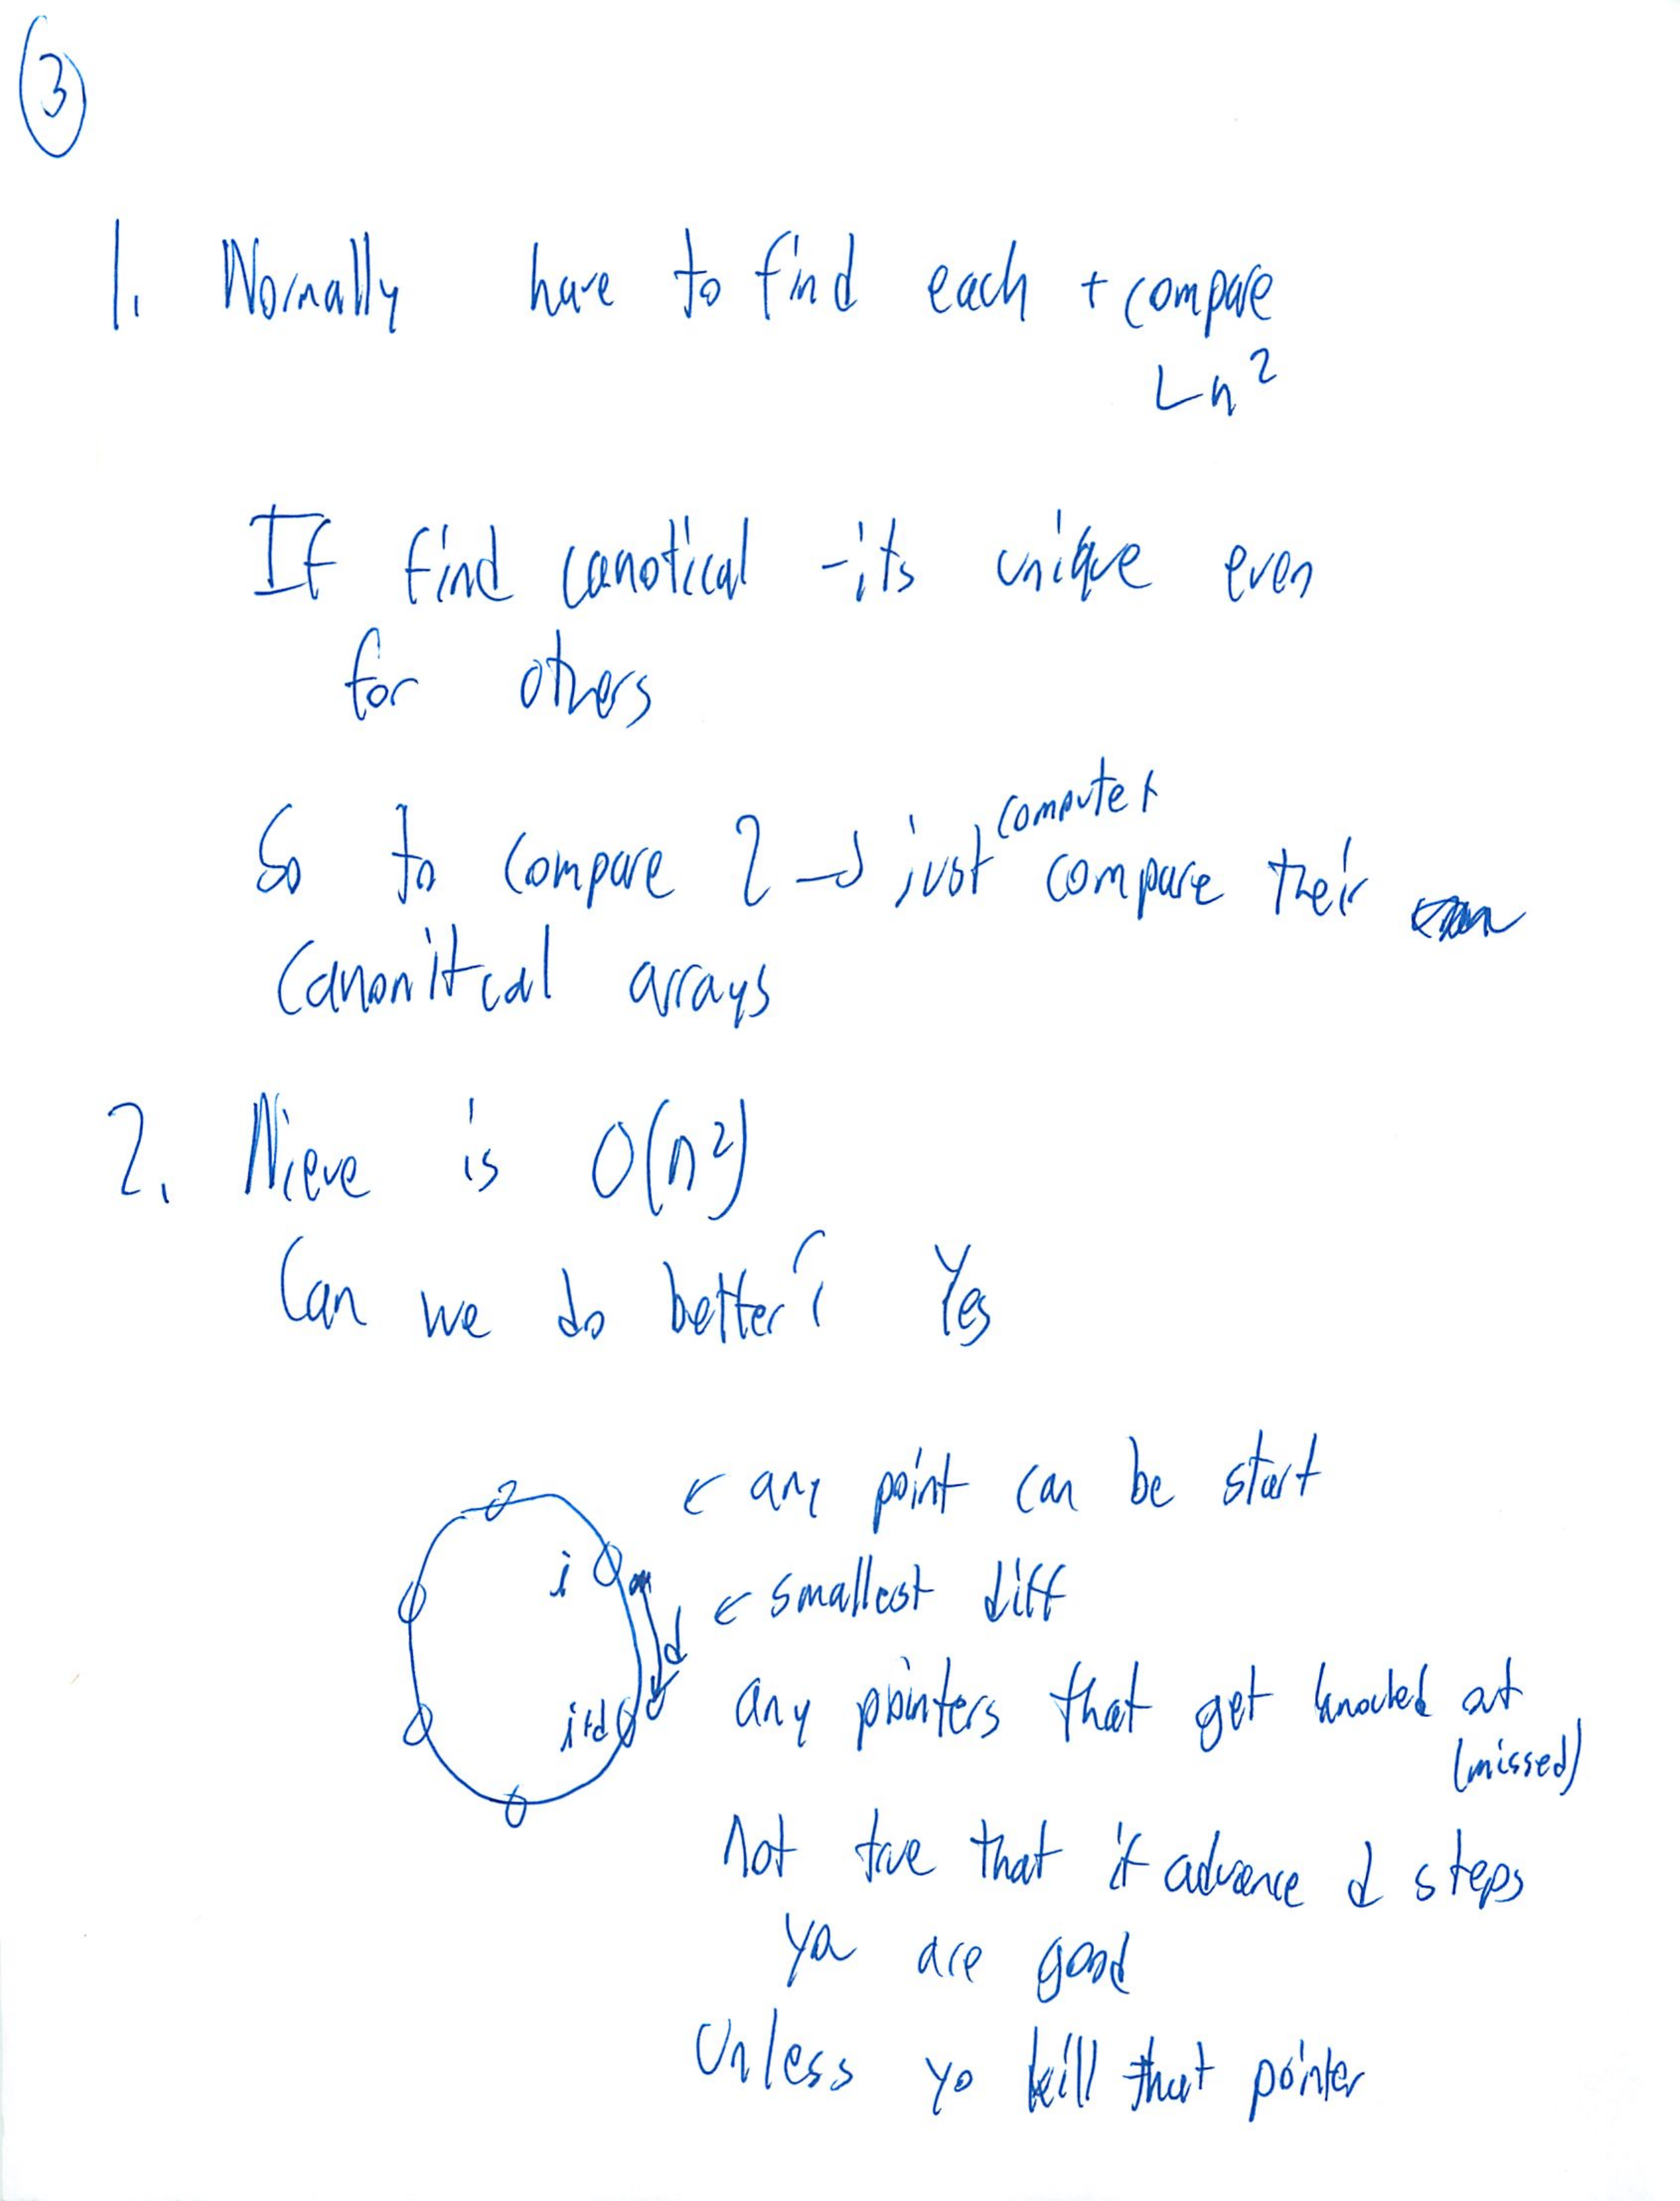 3
1. Normally have to find each + compare
Ln²
If find canotical - its unique even
for others
computet
So to compare 2 → just compare their
Canonitcal arrays
2. Nieve is O(n²)
Can we do better? Yes
← any point can be start
i
← smallest diff
d
i+d
any pointers that get knocked out
(missed)
Not true that if advance d steps
you are good
Unless yo kill that pointer